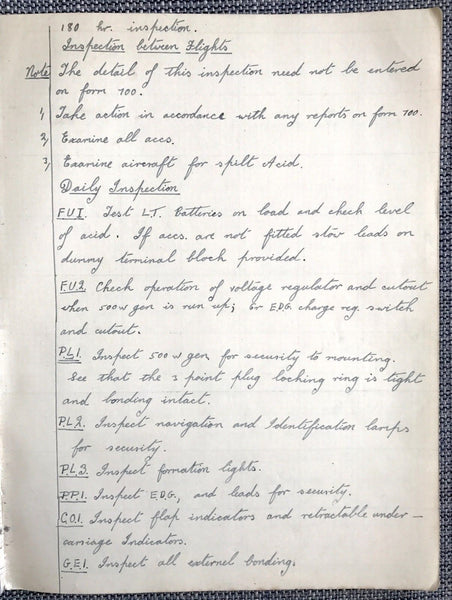 180 hr. inspection.
Inspection between Flights
Note The detail of this inspection need not be entered
on form 700.
1, Take action in accordance with any reports on form 700.
2, Examine all accs.
3, Examine aircraft for spilt Acid.
Daily Inspection
F.U.1. Test L.T. Batteries on load and check level
of acid. If accs. are not fitted stow leads on
dummy terminal block provided.
F.U.2. Check operation of voltage regulator and cutout
when 500w gen is run up; or E.D.G. charge reg. switch
and cutout.
P.L.1. Inspect 500w gen for security to mounting.
See that the 3 point plug locking ring is tight
and bonding intact.
P.L.2. Inspect navigation and Identification lamps
for security.
P.L.3. Inspect formation lights.
P.P.1. Inspect E.D.G., and leads for security.
C.O.1. Inspect flap indicators and retractable under-
carriage Indicators.
G.E.1. Inspect all external bonding.